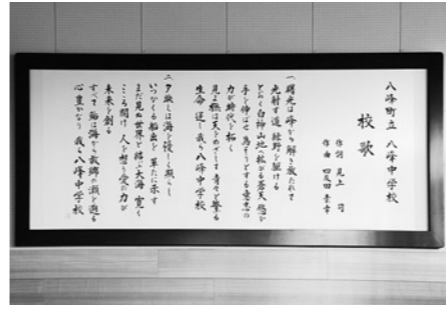 八峰町立 八峰中学校
校歌
作詞 見上 司
作曲 四反田 素幸
一、曙光は峰から解き放たれて
光射す道 緑野を駆ける
とどろく白神山地へ拡がる蒼天 悠々
手を伸ばせ 為そうとする意志の
力が時代を拓く
見よ 樵は天をめざして青々と繁る
生命 逞し 我ら八峰中学校
二、夕映えは海を優しく照らし
いつかくる船出を 革たに示す
まだ見ぬ世界と結ぶ大海 寛く
こころ開け 人を想う愛の力が
未来を創る
すべて 鮭は海から故郷の瀬を遡る
心 豊かなり 我ら八峰中学校